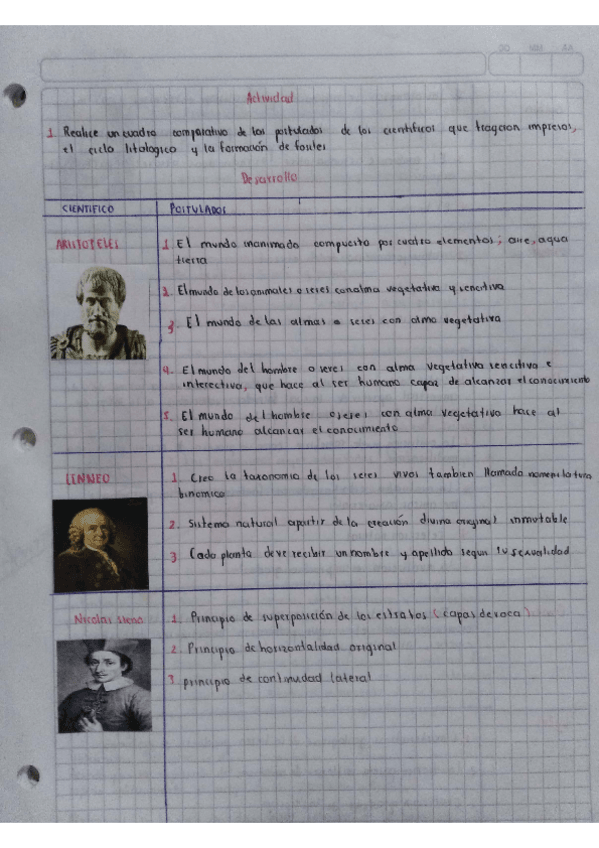 Actividad
1. Realice un cuadro comparativo de los postulados de los cientificos que tragaron impresos,
el ciclo litologico y la formación de fosiles
Desarrollo
CIENTIFICO POSTULADOS
ARISTOTELES
1. El mundo inanimado compuesto por cuatro elementos; aire, agua
tierra
2. El mundo de los animales o seres con alma vegetativa y sencitiva
3. El mundo de las almas o seres con alma vegetativa
4. El mundo del hombre o seres con alma vegetativa sencitiva e
interectiva, que hace al ser humano capaz de alcanzar el conocimiento
5. El mundo del hombre o seres con alma vegetativa hace al
ser humano alcanzar el conocimiento
LINNEO
1. Creo la taxonomia de los seres vivos tambien llamado nomenclatura
binomico
2. Sistema natural apartir de la creación divina original inmutable
3 Cada planta deve recibir un nombre y apellido segun su sexualidad
Nicolas Steno
1. Principio de superposición de los estratos (capas de roca)
2. Principio de horizontalidad original
3 principio de continuidad lateral